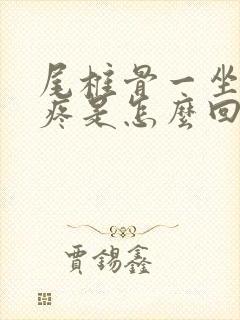 尾椎骨一坐
疼是怎麼回
賈錫鑫